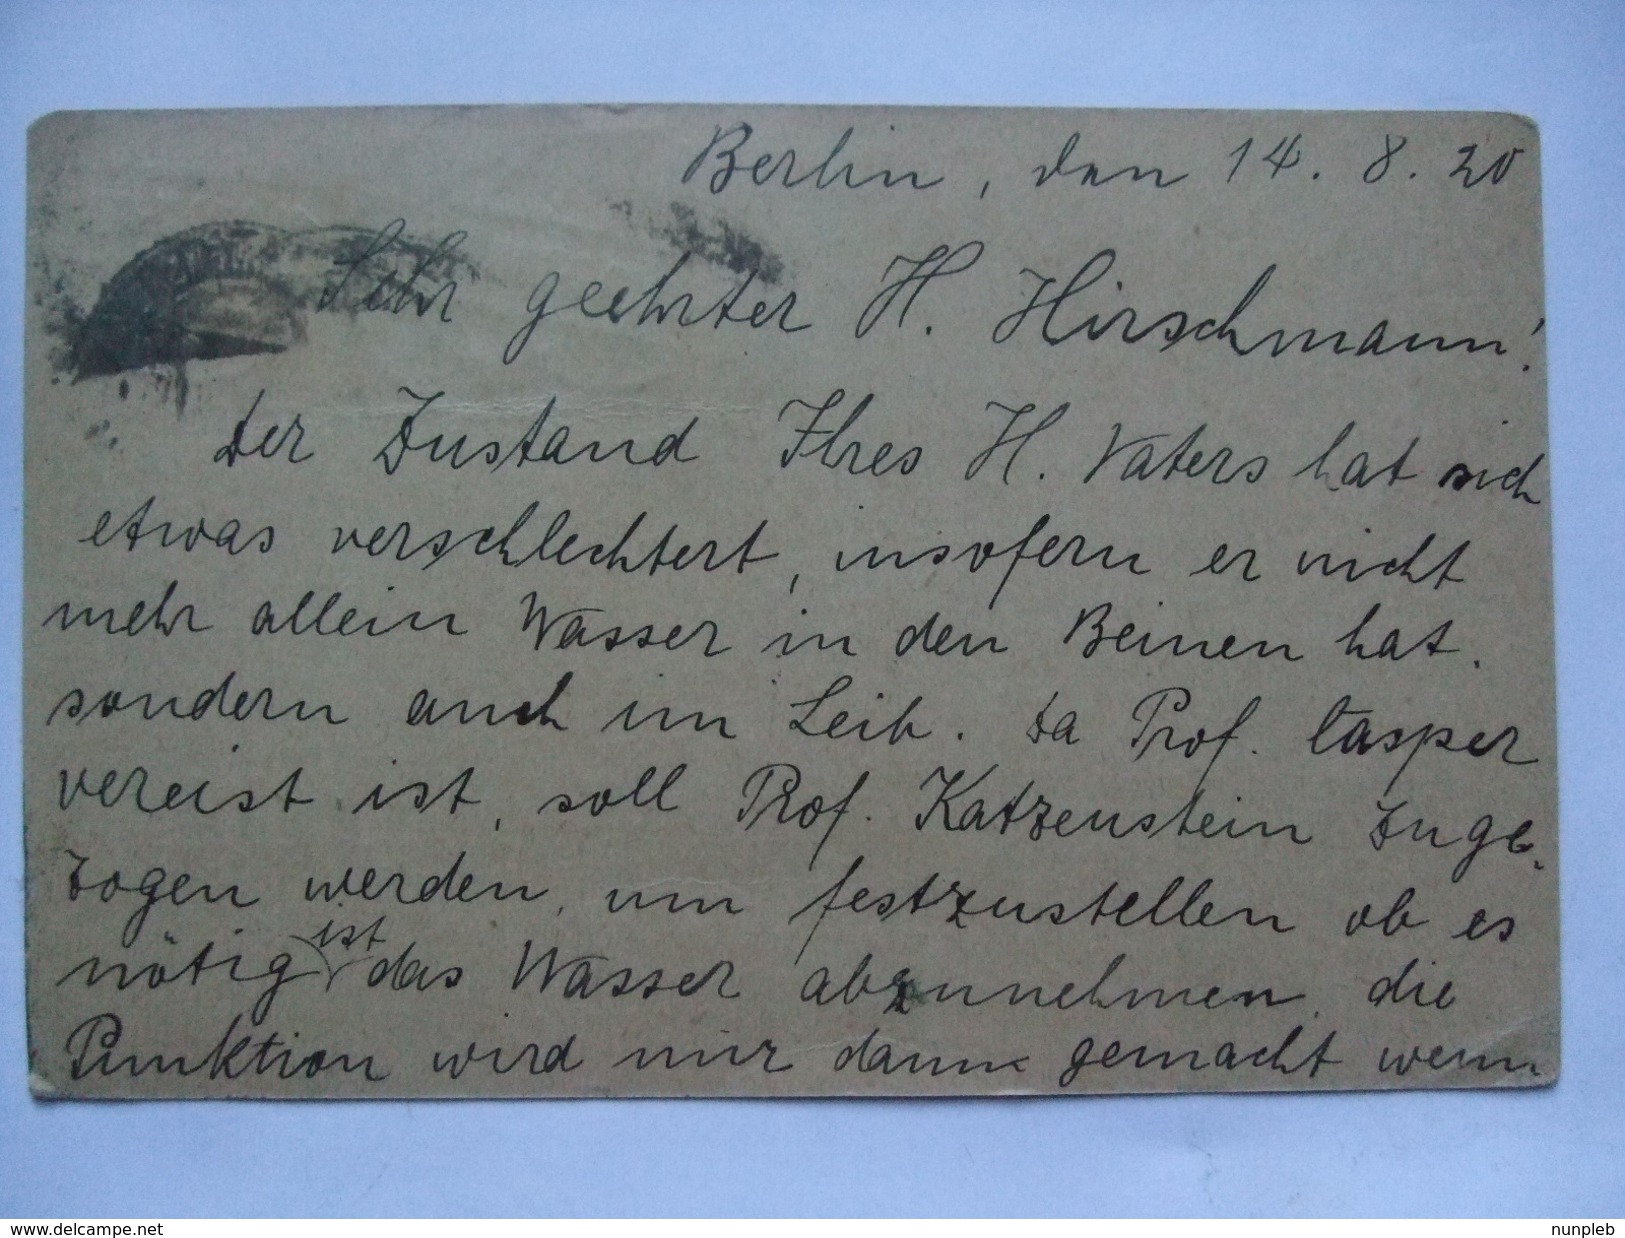 Berlin, den 14. 8. 20
Sehr geehrter H. Hirschmann!
Der Zustand Ihres H. Vaters hat sich
etwas verschlechtert, insofern er nicht
mehr allein Wasser in den Beinen hat.
sondern auch im Leib. Da Prof. Casper
vereist ist, soll Prof. Katzenstein zuge-
zogen werden, um festzustellen ob es
nötig ist das Wasser abzunehmen, die
Punktion wird nur dann gemacht wenn
www.delcampe.net
nunpleb